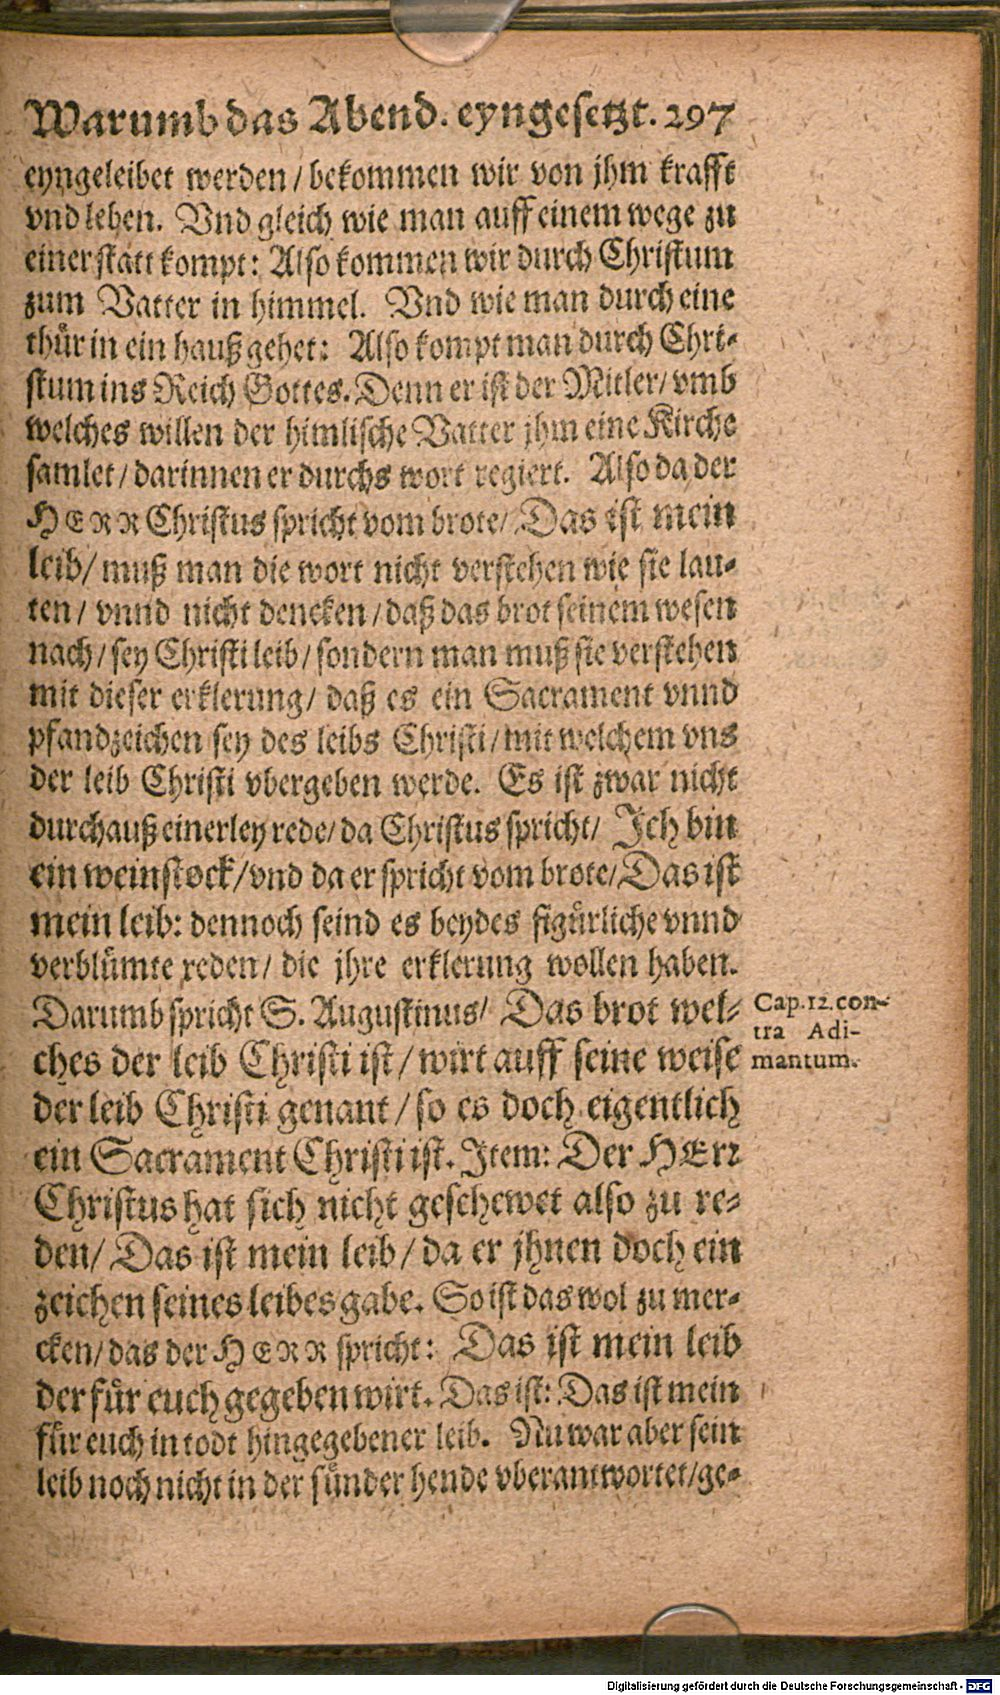 Warumb das Abend. eyngesetzt. 297
eyngeleibet werden / bekommen wir von jhm krafft
vnd leben. Vnd gleich wie man auff einem wege zu
einer statt kompt: Also kommen wir durch Christum
zum Vatter in himmel. Vnd wie man durch eine
thür in ein hauß gehet: Also kompt man durch Chri-
stum ins Reich Gottes. Denn er ist der Mitler / vmb
welches willen der himlische Vatter jhm eine Kirche
samlet / darinnen er durchs wort regiert. Also da der
HERR Christus spricht vom brote / Das ist mein
leib / muß man die wort nicht verstehen wie sie lau-
ten / vnnd nicht dencken / daß das brot seinem wesen
nach / sey Christi leib / sondern man muß sie verstehen
mit dieser erklerung / daß es ein Sacrament vnnd
pfandzeichen sey des leibs Christi / mit welchem vns
der leib Christi vbergeben werde. Es ist zwar nicht
durchauß einerley rede / da Christus spricht / Jch bin
ein weinstock / vnd da er spricht vom brote / Das ist
mein leib: dennoch seind es beydes figürliche vnnd
verblümte reden / die jhre erklerung wollen haben.
Darumb spricht S. Augustinus / Das brot wel-
ches der leib Christi ist / wirt auff seine weise
der leib Christi genant / so es doch eigentlich
ein Sacrament Christi ist. Jtem: Der HErr
Christus hat sich nicht geschewet also zu re-
den / Das ist mein leib / da er jhnen doch ein
zeichen seines leibes gabe. So ist das wol zu mer-
cken / das der HERR spricht: Das ist mein leib
der für euch gegeben wirt. Das ist: Das ist mein
für euch in todt hingegebener leib. Nu war aber sein
leib noch nicht in der sünder hende vberantwortet / ge-
Cap. 12. con-
tra Adi-
mantum.
Digitalisierung gefördert durch die Deutsche Forschungsgemeinschaft - DFG